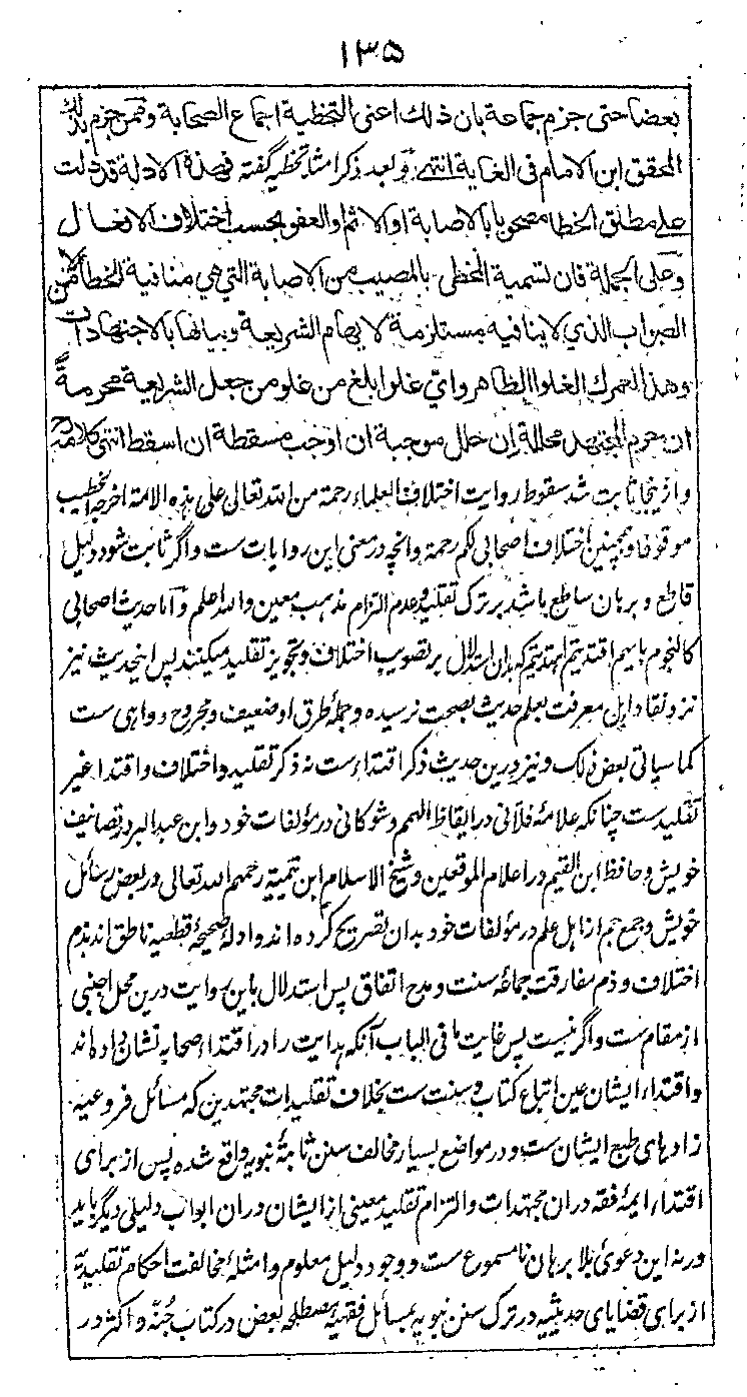 ۱۳۵
بعضا حتی جزم جماعة بان ذلك اعنی التخطیة اجماع الصحابة وممن جزم بذلك
المحقق ابن الامام فی الغایة انتهی وبعد ذکر امثلۀ تخطیه گفته فهذه الادلة قد دلت
علی مطلق الخطا مصحوبا بالاصابة او الاثم والعفو بحسب اختلاف الاحوال
وعلی الجملة فان تسمیة المخطی بالمصیب من الاصابة التی هی منافیة للخطأ لا من
الصواب الذی لا ینافیه مستلزمة لایهام الشریعة وبیانها بالاجتهادات
وهذا لعمرك الغلو الظاهر وای غلو ابلغ من غلو من جعل الشریعة محرمةً
ان حرم المجتهد محللة إن حلل موجبة ان اوجب مسقطة ان اسقط انتهی کلامه رح
و ازینجا ثابت شد سقوط روایت اختلاف العلماء رحمة من الله تعالی علی هذه الامة اخرجه الخطیب
موقوفا و همچنین اختلاف اصحابی لکم رحمة وانچه در معنی این روایات ست و اگر ثابت شود دلیل
قاطع و برهان ساطع باشد بر ترک تقلید و عدم التزام مذهب معین والله اعلم و اما حدیث اصحابی
کالنجوم بایهم اقتدیتم اهتدیتم که بدان استدلال بر تصویب اختلاف و تجویز تقلید میکنند پس اینحدیث نیز
نزد نقاد اهل معرفت بعلم حدیث بصحت نرسیده و جملۀ طرق او ضعیف و مجروح و واهی ست
کما سیاتی بعض ذلک و نیز درین حدیث ذکر اقتداء ست نه ذکر تقلید و اختلاف و اقتدا غیر
تقلید ست چنانکه علامۀ فلانی در ایقاظ الهمم و شوکانی در مؤلفات خود و ابن عبدالبر در تصانیف
خویش و حافظ ابن القیم در اعلام الموقعین و شیخ الاسلام ابن تیمیه رحمهم الله تعالی در بعض رسائل
خویش و جمع جم از اهل علم در مؤلفات خود بدان تصریح کرده اند و ادلۀ صحیحۀ قطعیه ناطق اند بذم
اختلاف و ذم مفارقت جماعۀ سنت و مدح اتفاق پس استدلال باین روایت درین محل اجنبی
از مقام ست و اگر نیست پس غایت ما فی الباب آنکه هدایت را در اقتداء صحابه نشان داده اند
و اقتداء ایشان عین اتباع کتاب و سنت ست بخلاف تقلیدات مجتهدین که مسائل فروعیه
زادهای طبع ایشان ست و در مواضع بسیار مخالف سنن ثابتۀ نبویه واقع شده پس از برای
اقتداء ایمۀ فقه دران مجتهدات و التزام تقلید معینی از ایشان دران ابواب دلیلی دیگر باید
ورنه این دعوی بلا برهان نامسموع ست و وجود دلیل معلوم و امثلۀ مخالفت احکام تقلیدیه
از برای قضایای حدیثیه در ترک سنن نبویه بمسائل فقهیۀ مصطلحه بعض در کتاب جُنّه و اکثر در